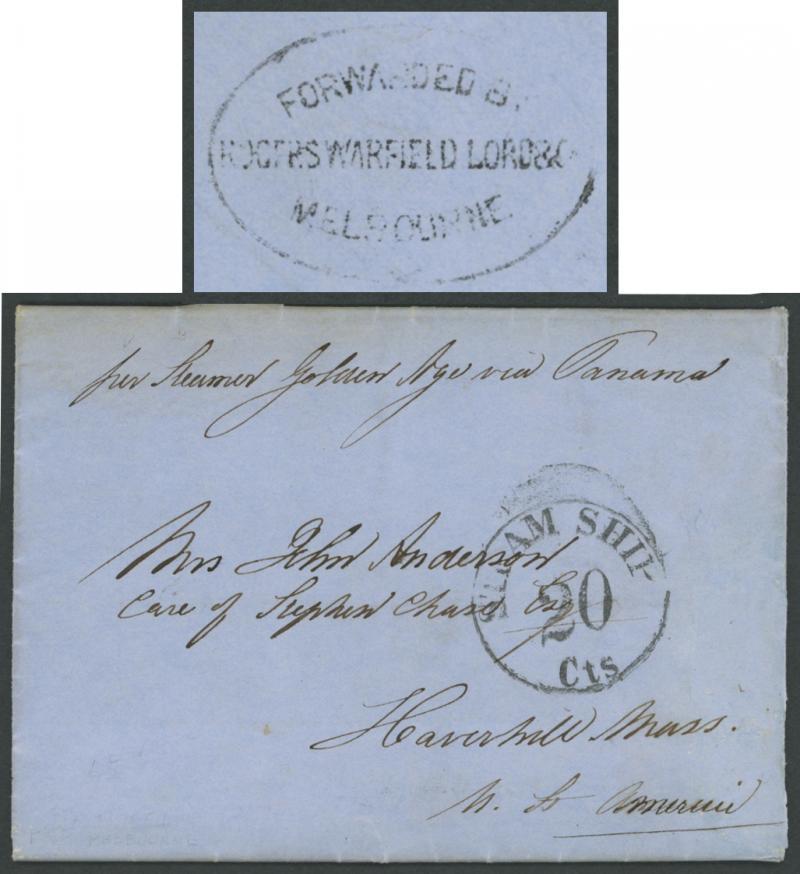 FORWARDED BY
ROGERS WARFIELD LORD & Co
MELBOURNE.
per Steamer Golden Age via Panama
STEAM SHIP
20
Cts
Mrs John Anderson
Care of Stephen Chase Esq
Haverhill Mass.
N. S. America
MELBOURNE